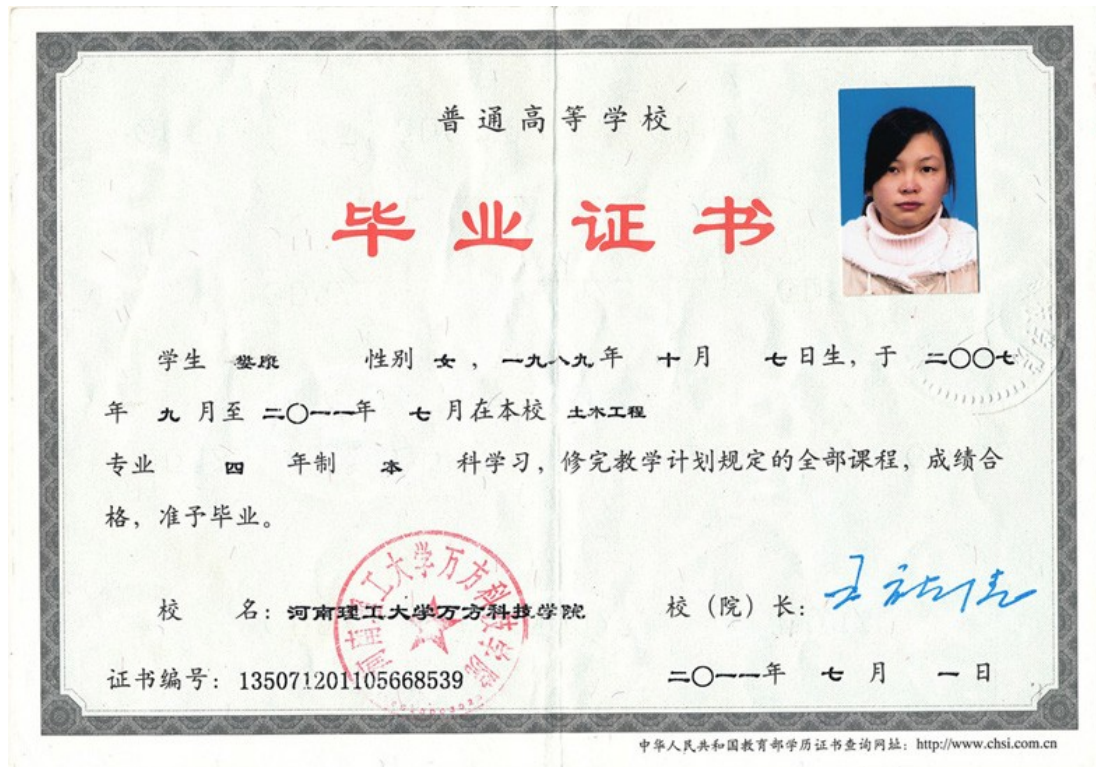 普通高等学校
毕业证书
学生 娄康 性别 女，一九八九年 十月 七日生，于 二〇〇七
年 九 月至 二〇一一年 七 月在本校 土木工程
专业 四 年制 本 科学习，修完教学计划规定的全部课程，成绩合
格，准予毕业。
河南理工大学万方科技学院
校 名：河南理工大学万方科技学院 校（院）长：
证书编号：135071201105668539 二〇一一年 七 月 一 日
中华人民共和国教育部学历证书查询网址：http://www.chsi.com.cn